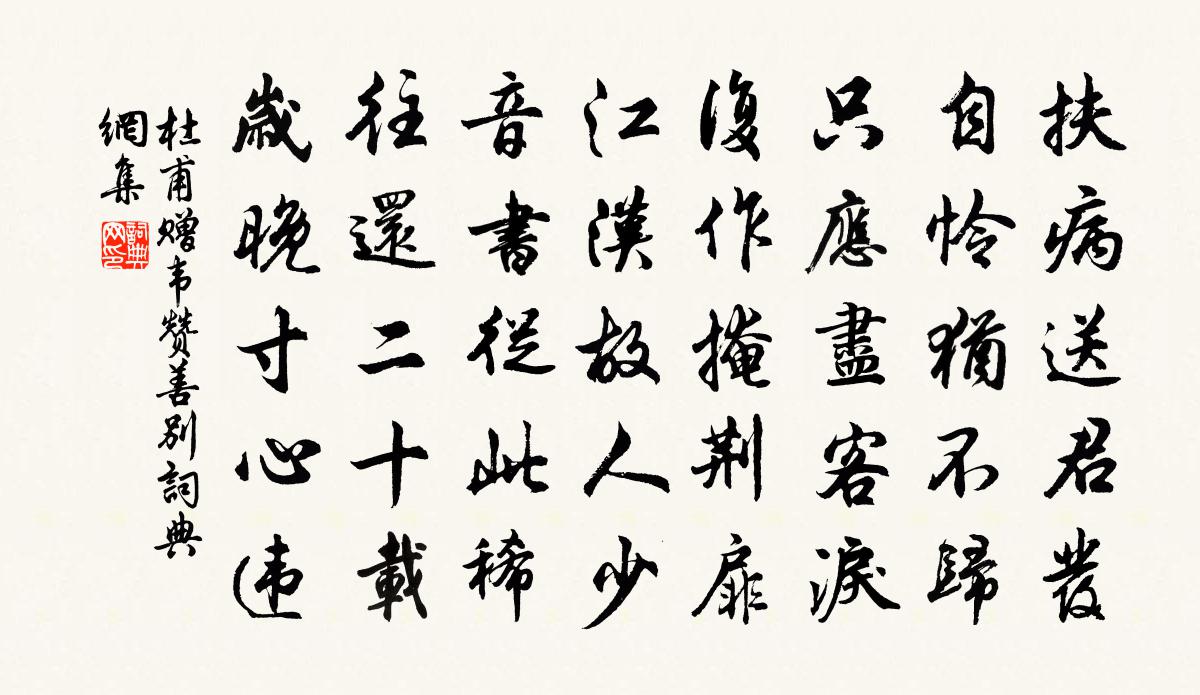 扶病送君發
自怜猶不歸
只應盡客淚
復作掩荆扉
江漢故人少
音書從此稀
往還二十載
歲晚寸心违
杜甫赠韦赞善别詞典
網集
詞典
网印